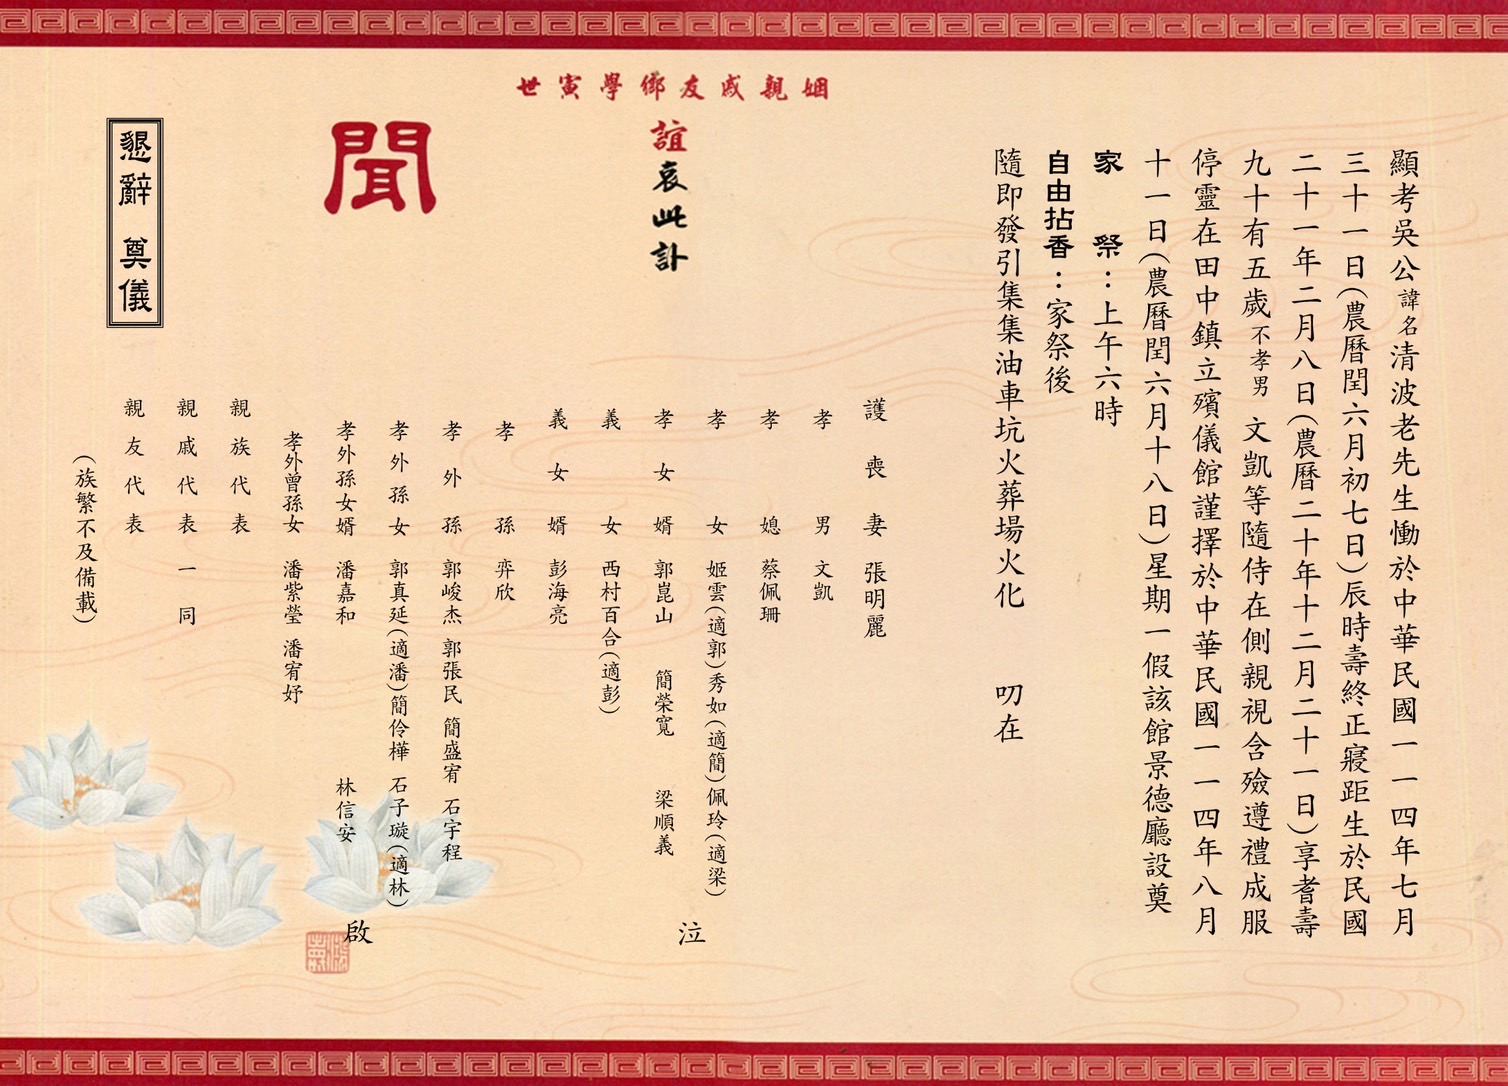 顯考吳公諱名清波老先生慟於中華民國一一四年七月
三十一日(農曆閏六月初七日)辰時壽終正寢距生於民國
二十一年二月八日(農曆二十年十二月二十一日)享耆壽
九十有五歲不孝男 文凱等隨侍在側親視含殮遵禮成服
停靈在田中鎮立殯儀館謹擇於中華民國一一四年八月
十一日(農曆閏六月十八日)星期一假該館景德廳設奠
家 祭：上午六時
自由拈香：家祭後
隨即發引集集油車坑火葬場火化 叨在
姻親戚友鄉學寅世
誼哀此訃
聞
護喪妻 張明麗
孝男 文凱
孝媳 蔡佩珊
孝女 姬雲(適郭)秀如(適簡)佩玲(適梁)
孝女婿 郭崑山 簡榮寬 梁順義
義女 西村百合(適彭)
義女婿 彭海亮
孝孫 弈欣
孝外孫 郭峻杰 郭張民 簡盛宥 石宇程
孝外孫女 郭真延(適潘)簡伶樺 石子璇(適林)
孝外孫女婿 潘嘉和 林信安
孝外曾孫女 潘紫瑩 潘宥妤
親族代表
親戚代表 一同
親友代表
(族繁不及備載)
泣
啟
懇辭 奠儀